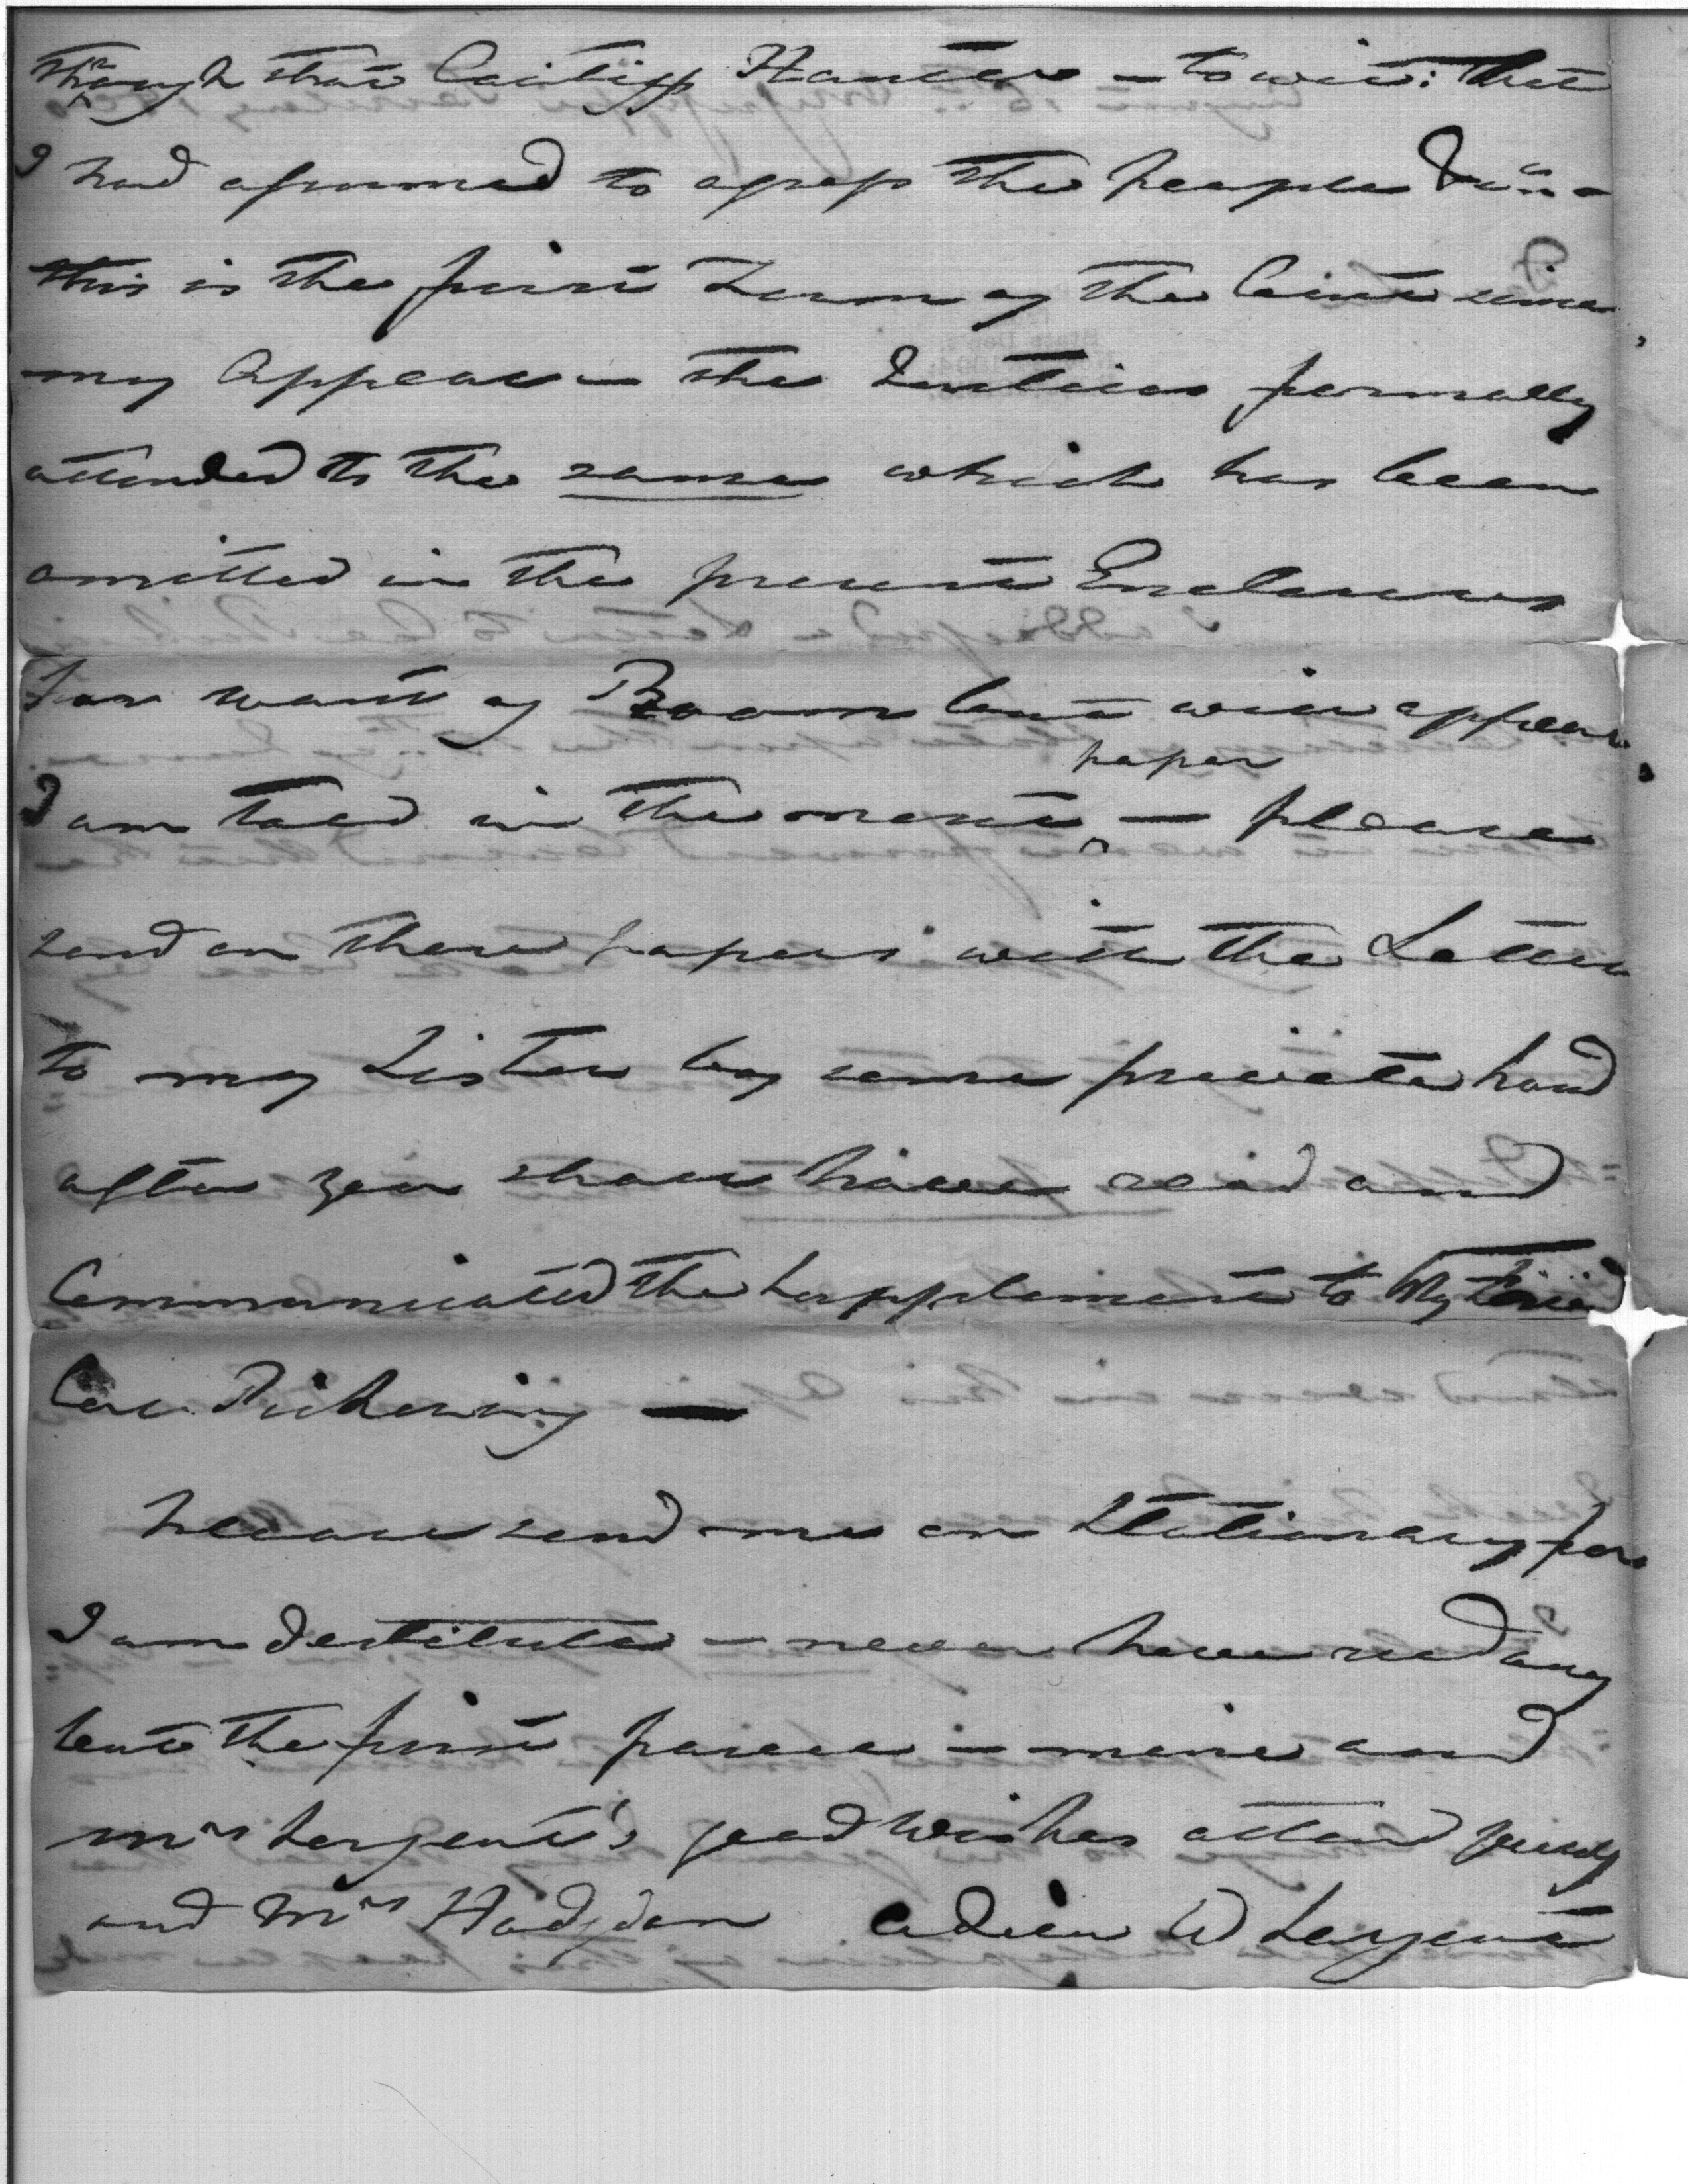 through that Caitiff Hunter — to wit: that
I had assumed to oppress the People &c.a —
this is the first Term of the Court since
my Appeal — the Justices formally
attended to the same which has been
omitted in the present Enclosures
for want of Room but will appear
I am told in the next paper — please
send on these papers with the Letter
to my Sister by some private hand
after you shall have read and
Communicated the Supplement to My Friend
Col. Pickering —
please send me on Stationary for
I am destitute — never have recd any
but the first parcel — mine and
Mrs Sargent's good Wishes attend you
and Mrs Hodgdon adieu W Sargent